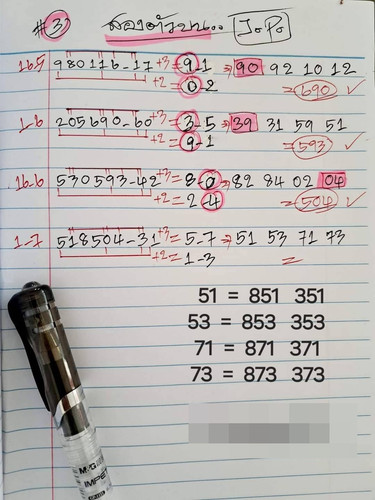 #3 สองตัวบน... J๐P๐
16-5 980176-17 +3= 9-1 → 90 92 10 12
+2= 0-2 = 690 ✓
1-6 205690-60 +3= 3-5 → 39 31 59 51
+2= 9-1 = 593 ✓
16-6 530593-42 +3= 8-0 → 82 84 02 04
+2= 2-4 = 504 ✓
1-7 518504-31 +3= 5-7 → 51 53 71 73
+2= 1-3 =
51 = 851 351
53 = 853 353
71 = 871 371
73 = 873 373
M&G